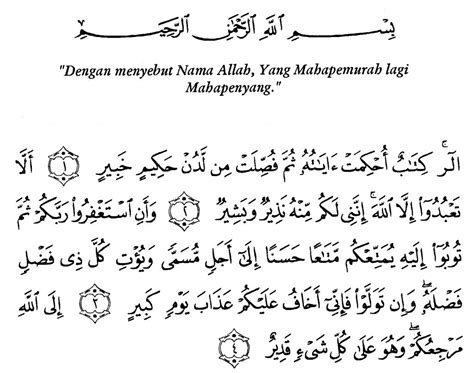 بِسْمِ اللَّهِ الرَّحْمَٰنِ الرَّحِيمِ
"Dengan menyebut Nama Allah, Yang Mahapemurah lagi
Mahapenyang."
الٓر ۚ كِتَٰبٌ أُحْكِمَتْ ءَايَٰتُهُۥ ثُمَّ فُصِّلَتْ مِن لَّدُنْ حَكِيمٍ خَبِيرٍ ﴿١﴾ أَلَّا
تَعْبُدُوٓا۟ إِلَّا اللَّهَ ۚ إِنَّنِى لَكُم مِّنْهُ نَذِيرٌ وَبَشِيرٌ ﴿٢﴾ وَأَنِ اسْتَغْفِرُوا۟ رَبَّكُمْ ثُمَّ
تُوبُوٓا۟ إِلَيْهِ يُمَتِّعْكُم مَّتَٰعًا حَسَنًا إِلَىٰٓ أَجَلٍ مُّسَمًّى وَيُؤْتِ كُلَّ ذِى فَضْلٍ
فَضْلَهُۥ ۖ وَإِن تَوَلَّوْا۟ فَإِنِّىٓ أَخَافُ عَلَيْكُمْ عَذَابَ يَوْمٍ كَبِيرٍ ﴿٣﴾ إِلَى اللَّهِ
مَرْجِعُكُمْ ۖ وَهُوَ عَلَىٰ كُلِّ شَىْءٍ قَدِيرٌ ﴿٤﴾